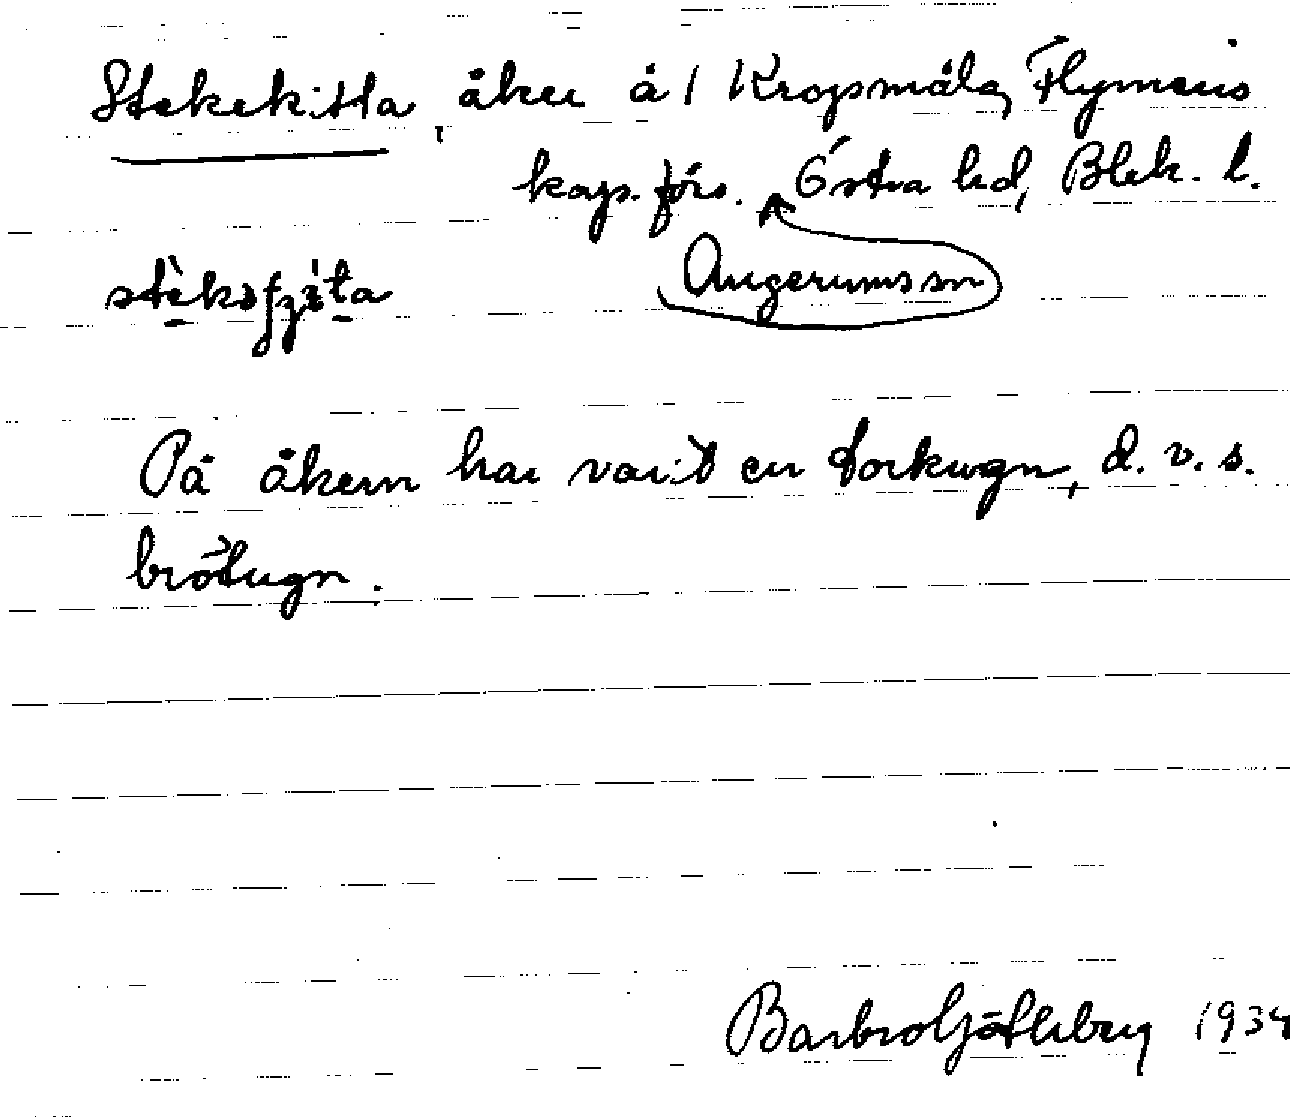 Stekekitta, åker å 1 Kropsmåla, Flymens
kap. förs. Östra hd, Blek. l.
Augerums sn
På åkern har varit en torkugn, d. v. s.
brötugn.
Barbro 1934